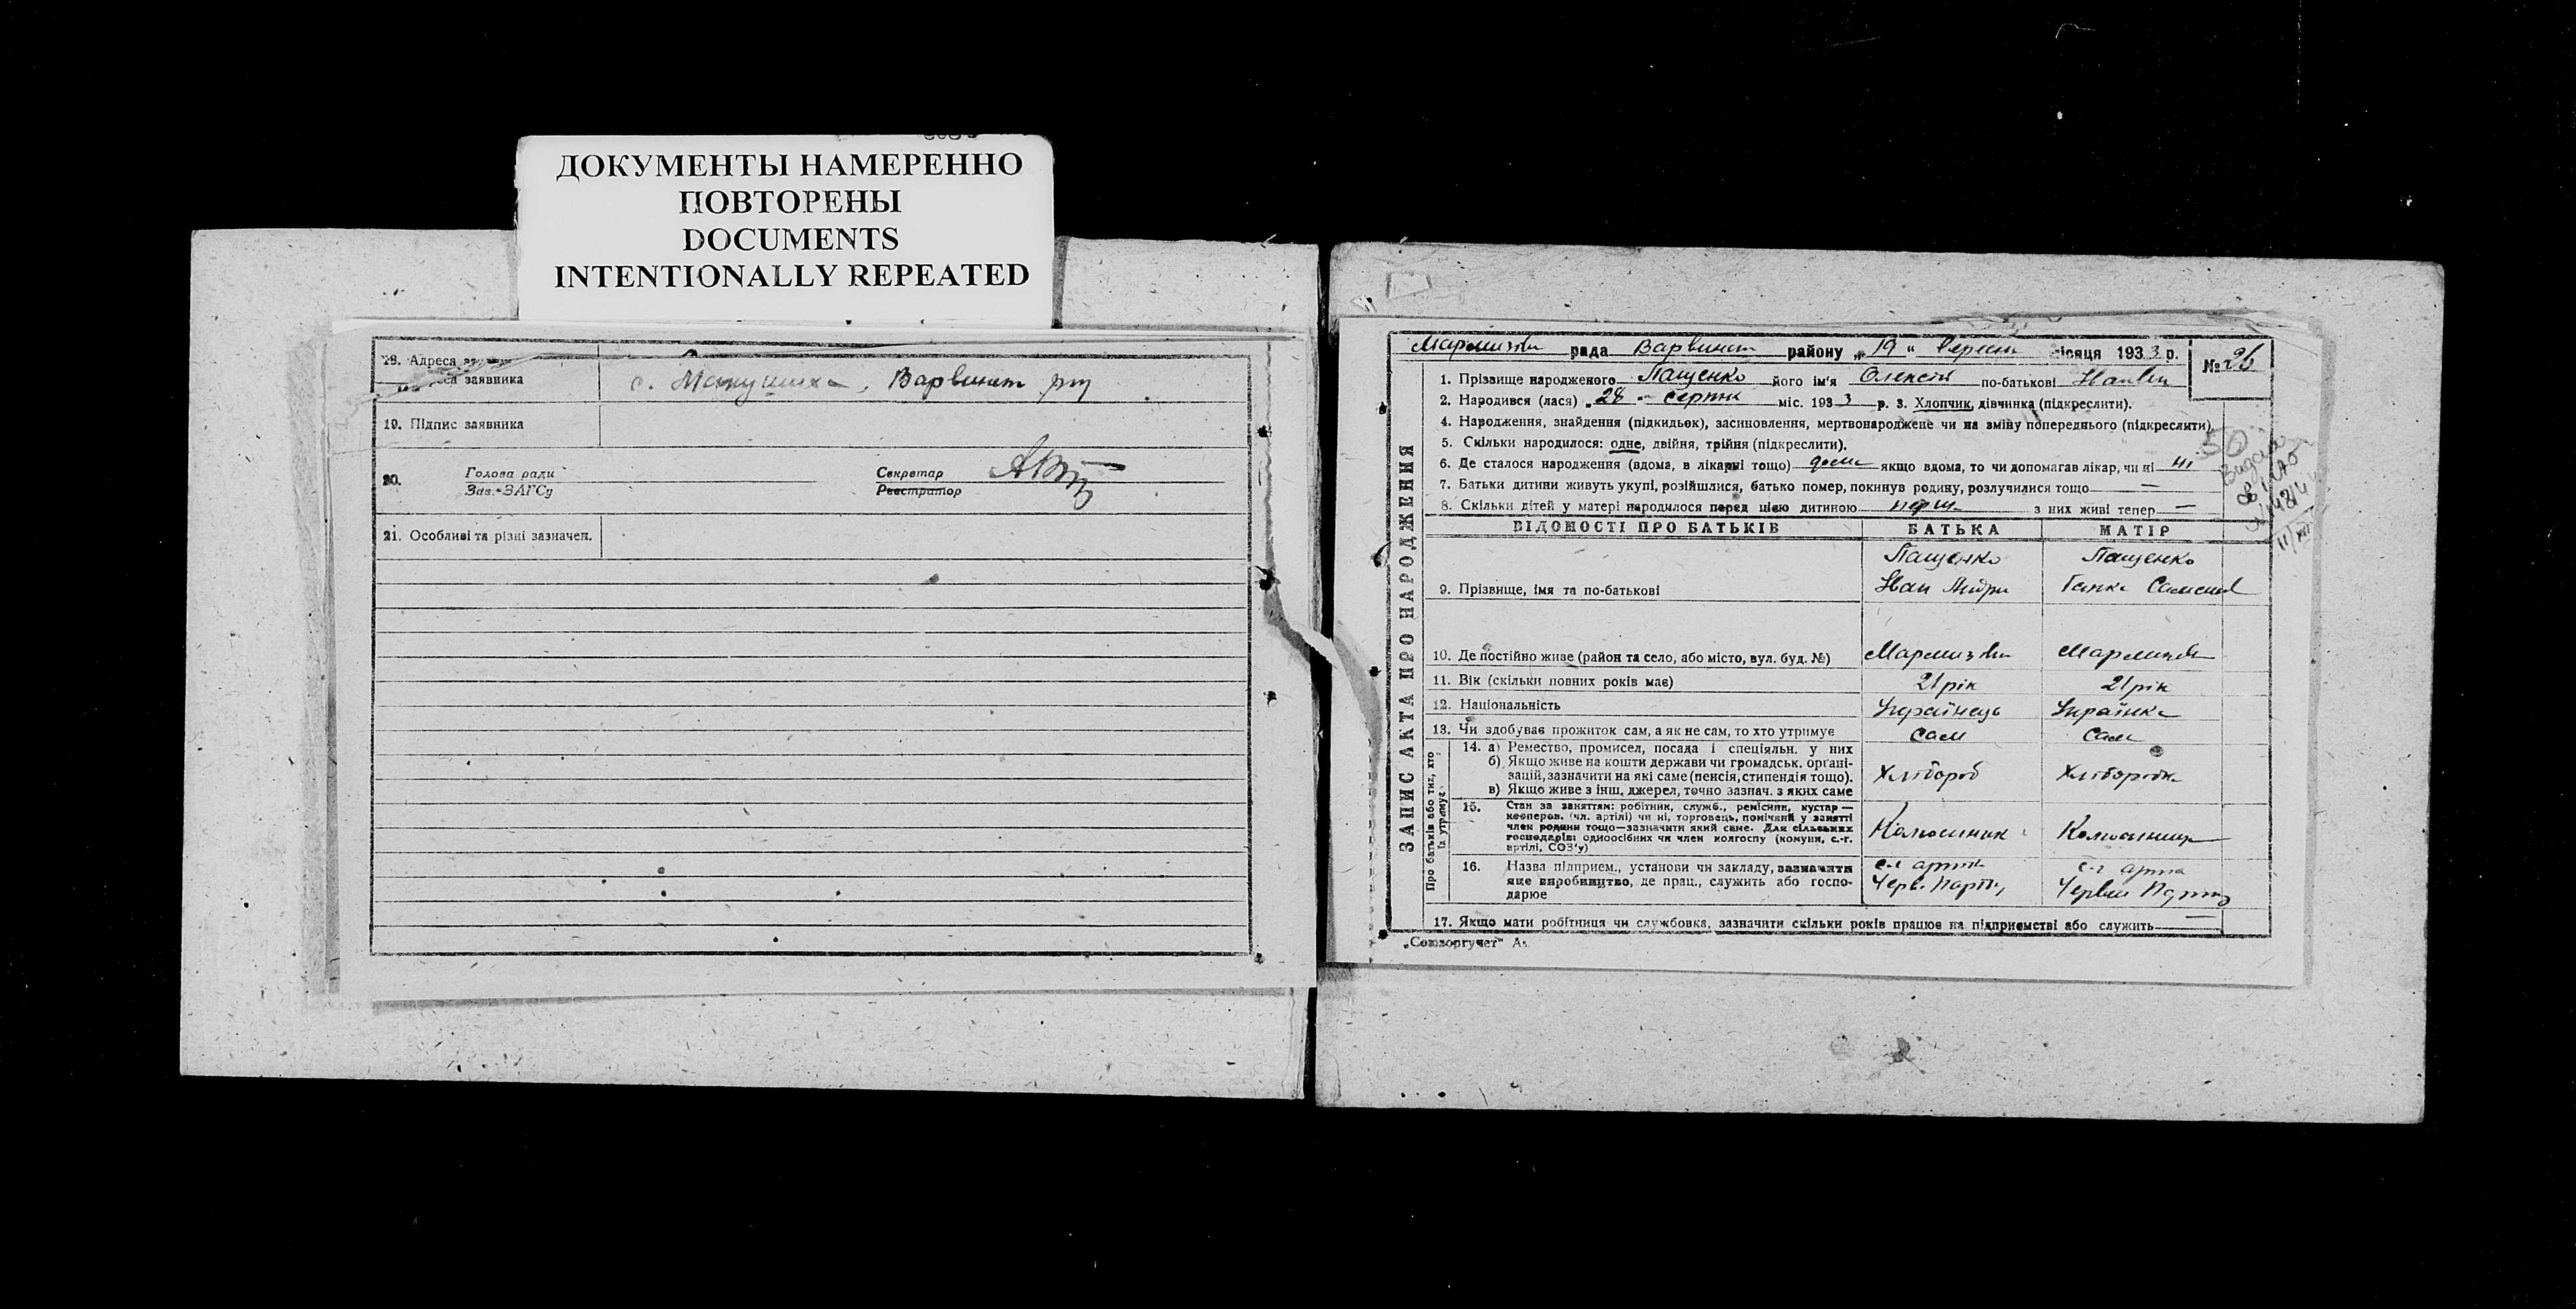 ДОКУМЕНТЫ НАМЕРЕННО
ПОВТОРЕНЫ
DOCUMENTS
INTENTIONALLY REPEATED
18. Адреса
заявника с. Макушиха, Варвинськ
19. Підпис заявника
20. Голова ради Секретар
Зав. ЗАГСу Реєстратор
21. Особливі та різні зазначен.
ЗАПИС АКТА ПРО НАРОДЖЕННЯ
рада Варвинськ району „19“ місяця 1933 р. № 26
1. Прізвище народженого Пащенко його ім'я Олексій по-батькові Іванв
2. Народився (лася) „28 серпня міс. 1933 р. 3. Хлопчик, дівчинка (підкреслити).
4. Народження, знайдення (підкидьок), засиновлення, мертвонароджене чи на зміну попереднього (підкреслити)
5. Скільки народилося: одне, двійня, трійня (підкреслити).
6. Де сталося народження (вдома, в лікарні тощо) дома якщо вдома, то чи допомагав лікар, чи ні ні
7. Батьки дитини живуть укупі, розійшлися, батько помер, покинув родину, розлучилися тощо —
8. Скільки дітей у матері народилося перед цією дитиною перш з них живі тепер —
50
ВІДОМОСТІ ПРО БАТЬКІВ БАТЬКА МАТІР
Пащенко Пащенко
9. Прізвище, імя та по-батькові Іван Андрі
10. Де постійно живе (район та село, або місто, вул. буд. №)
11. Вік (скільки повних років має) 21 рік 21 рік
12. Національність Українець Українка
13. Чи здобуває прожиток сам, а як не сам, то хто утримує сам сам
Про батьків або тих, хто їх утримує
14. а) Ремество, промисел, посада і спеціяльн. у них
б) Якщо живе на кошти держави чи громадськ. органі-
зацій, зазначити на які саме (пенсія, стипендія тощо). Хлібороб Хлібороб
в) Якщо живе з інш. джерел, точно зазнач. з яких саме
15. Стан за заняттям: робітник, служб., ремісник, кустар —
кооперов. (чл. артілі) чи ні, торговець, помічний у занятті
член родини тощо—зазначити який саме. Для сільських
господарів: одноосібних чи член колгоспу (комуни, с.-г.
артілі, СОЗ'у)
16. Назва підприєм., установи чи закладу, зазначити с-г арті с-г арті
яке виробництво, де прац., служить або госпо-
дарює
17. Якщо мати робітниця чи службовка, зазначити скільки років працює на підприємстві або служить —
„Союзоргучет“